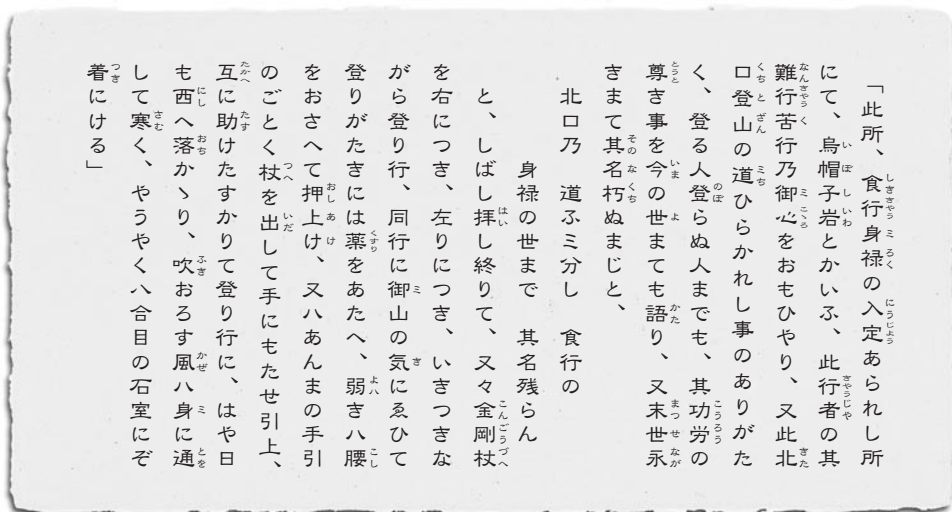 「此所、食行身禄の入定あられし所
にて、烏帽子岩とかいふ、此行者の其
難行苦行乃御心をおもひやり、又此北
口登山の道ひらかれし事のありがた
く、登る人登らぬ人までも、其功労の
尊き事を今の世まても語り、又末世永
きまて其名朽ぬまじと、
北口乃　道ふミ分し　食行の
身禄の世まで　其名残らん
と、しばし拝し終りて、又々金剛杖
を右につき、左りにつき、いきつきな
がら登り行、同行に御山の気にゑひて
登りがたきには薬をあたへ、弱き八腰
をおさへて押上け、又ハあんまの手引
のごとく杖を出して手にもたせ引上、
互に助けたすかりて登り行に、はや日
も西へ落かゝり、吹おろす風ハ身に通
して寒く、やうやく八合目の石室にぞ
着にける」